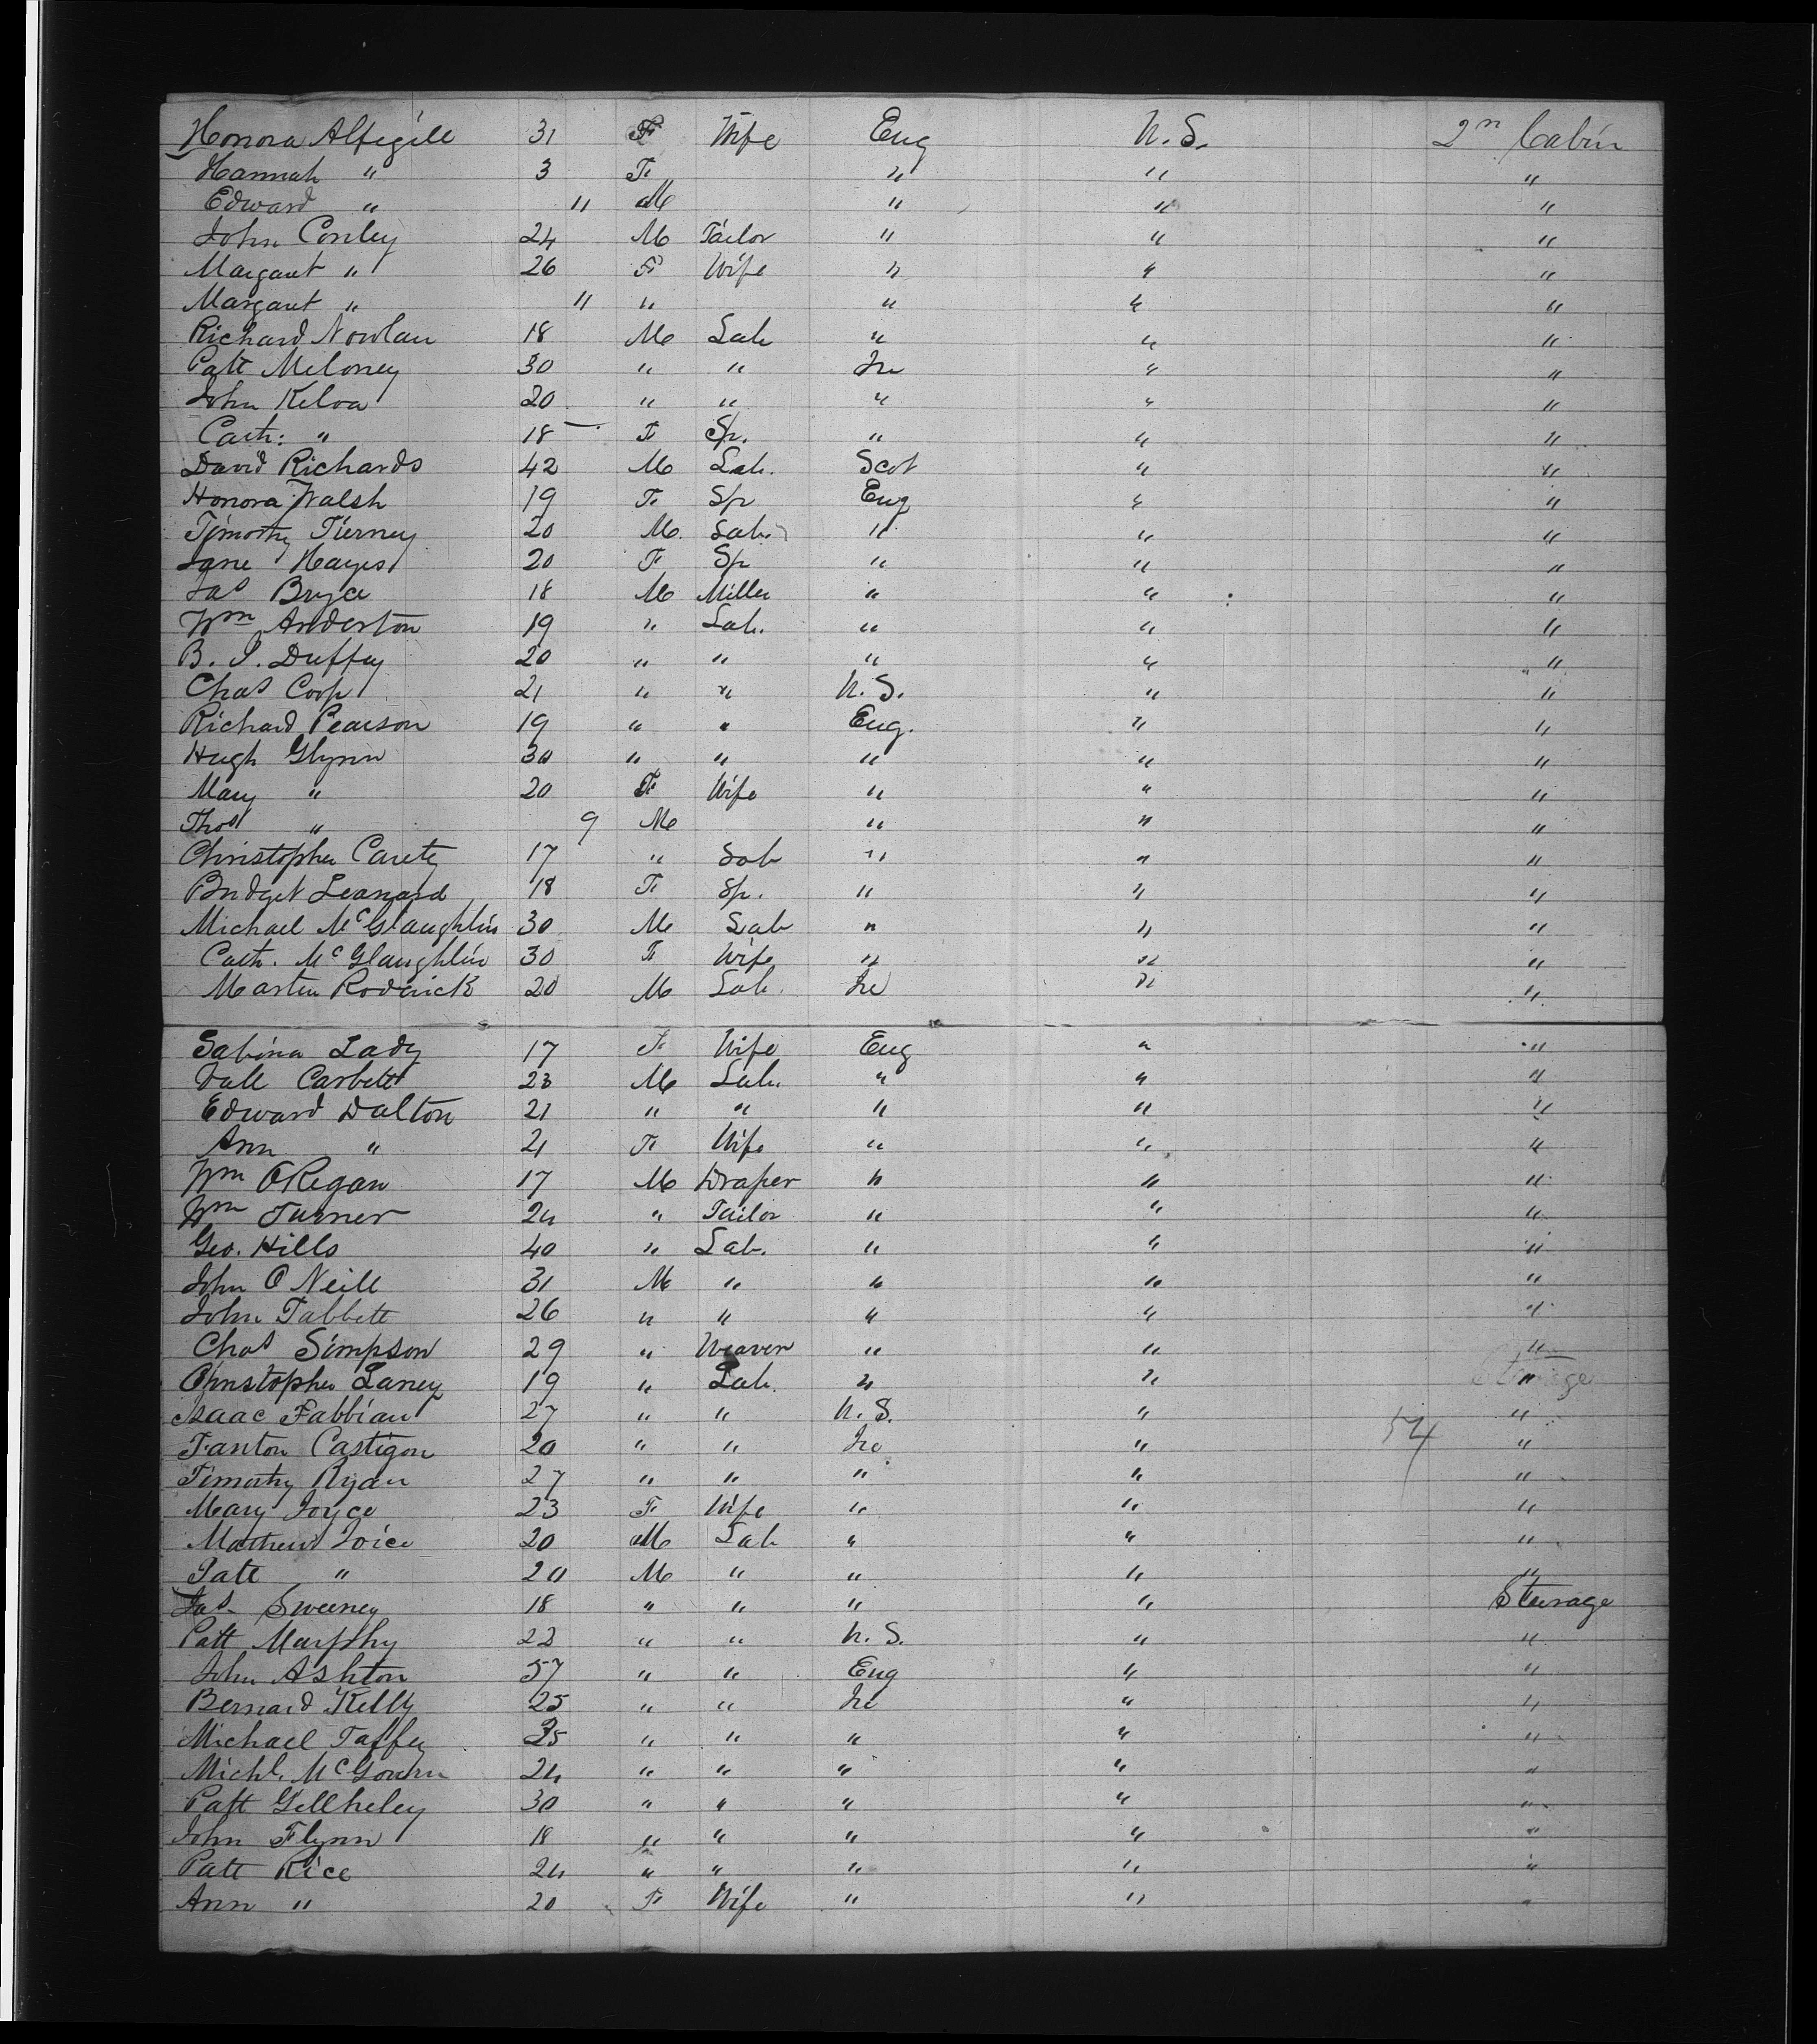 Honora Alfigill 31 F Wife Eng U.S. 2n Cabin
Hannah " 3 F " " "
Edward " 11 M " " "
John Conley 24 M Tailor " " "
Margaret " 26 F Wife " " "
Margaret " 11 " " " "
Richard Nowlan 18 M Lab " " "
Patt Meloney 30 " " Ire " "
John Keloa 20 " " " " "
Cath: " 18 F Sp. " " "
David Richards 42 M Lab. Scot " "
Honora Walsh 19 F Sp Eng " "
Timothy Tierney 20 M. Lab. " " "
Jane Hayes 20 F Sp " " "
Jas Bryce 18 M Miller " " "
Wm Anderton 19 " Lab. " " "
B. J. Duffey 20 " " " " "
Chas Coop 21 " " U.S. " "
Richard Pearson 19 " " Eng. " "
Hugh Glynn 30 " " " " "
Mary " 20 F Wife " " "
Thos " 9 M " " "
Christopher Carety 17 " Lab " " "
Bridget Leanard 18 F Sp. " " "
Michael McGlaughlin 30 M Lab " " "
Cath. McGlaughlin 30 F Wife " " "
Martin Roderick 20 M Lab. Ire " "
Sabina Lady 17 F Wife Eng " "
Carbett 23 M Lab. " " "
Edward Dalton 21 " " " " "
Ann " 21 F Wife " " "
Wm ORegan 17 M Draper " " "
Wm Turner 24 " Tailor " " "
Geo. Hills 40 " Lab. " " "
John O Neill 31 M " " " "
John Tabbett 26 " " " " "
Chas Simpson 29 " Weaver " " "
Christopher Laney 19 " Lab. " " "
Isaac Fabbian 27 " " U.S. " "
Fanton Castigon 20 " " Ire " 54 "
Timothy Ryan 27 " " " " "
Mary Joyce 23 F Wife " " "
Mathew Joice 20 M Lab " " "
Patt " 20 M " " " "
Jas Sweeney 18 " " " " Steerage
Patt Murphy 22 " " U.S. " "
John Ashton 57 " " Eng " "
Bernard Kelly 25 " " Ire " "
Michael Taffey 35 " " " " "
Michl. McGovern 24 " " " " "
Patt Gillheley 30 " " " " "
John Flynn 18 " " " " "
Patt Rice 24 " " " " "
Ann " 20 F Wife " " "